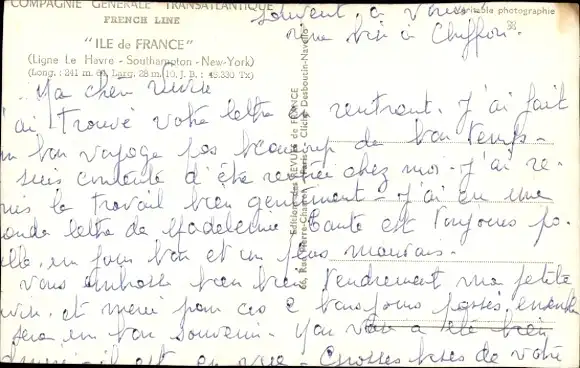 COMPAGNIE GENERALE TRANSATLANTIQUE
FRENCH LINE
"ILE de FRANCE"
(Ligne Le Havre - Southampton - New-York)
(Long. : 241 m. 60, Larg. 28 m. 10, J. B. : 45.330 Tx)
véritable photographie
38
Editions des REVUES de FRANCE
66, Rue Pierre-Charron - Paris - Cliché Desboutin-Navello
souvent, à vous
à Chiffon.
Ma chère
ai trouvé votre lettre rentrant. J'ai fait
un bon voyage pas beaucoup de bon temps -
suis contente d'être rentrée chez moi - j'ai re-
mis le travail bien gentiment - J'ai eu une
lettre de Madeleine Tante est toujours pa-
un jour bon et un plus mauvais.
vous embrasse bien bien tendrement ma petite
et merci pour ces 2 bons jours passés ensemble
sera un bon souvenir. a été bien
il est en - Grosses bises de votre